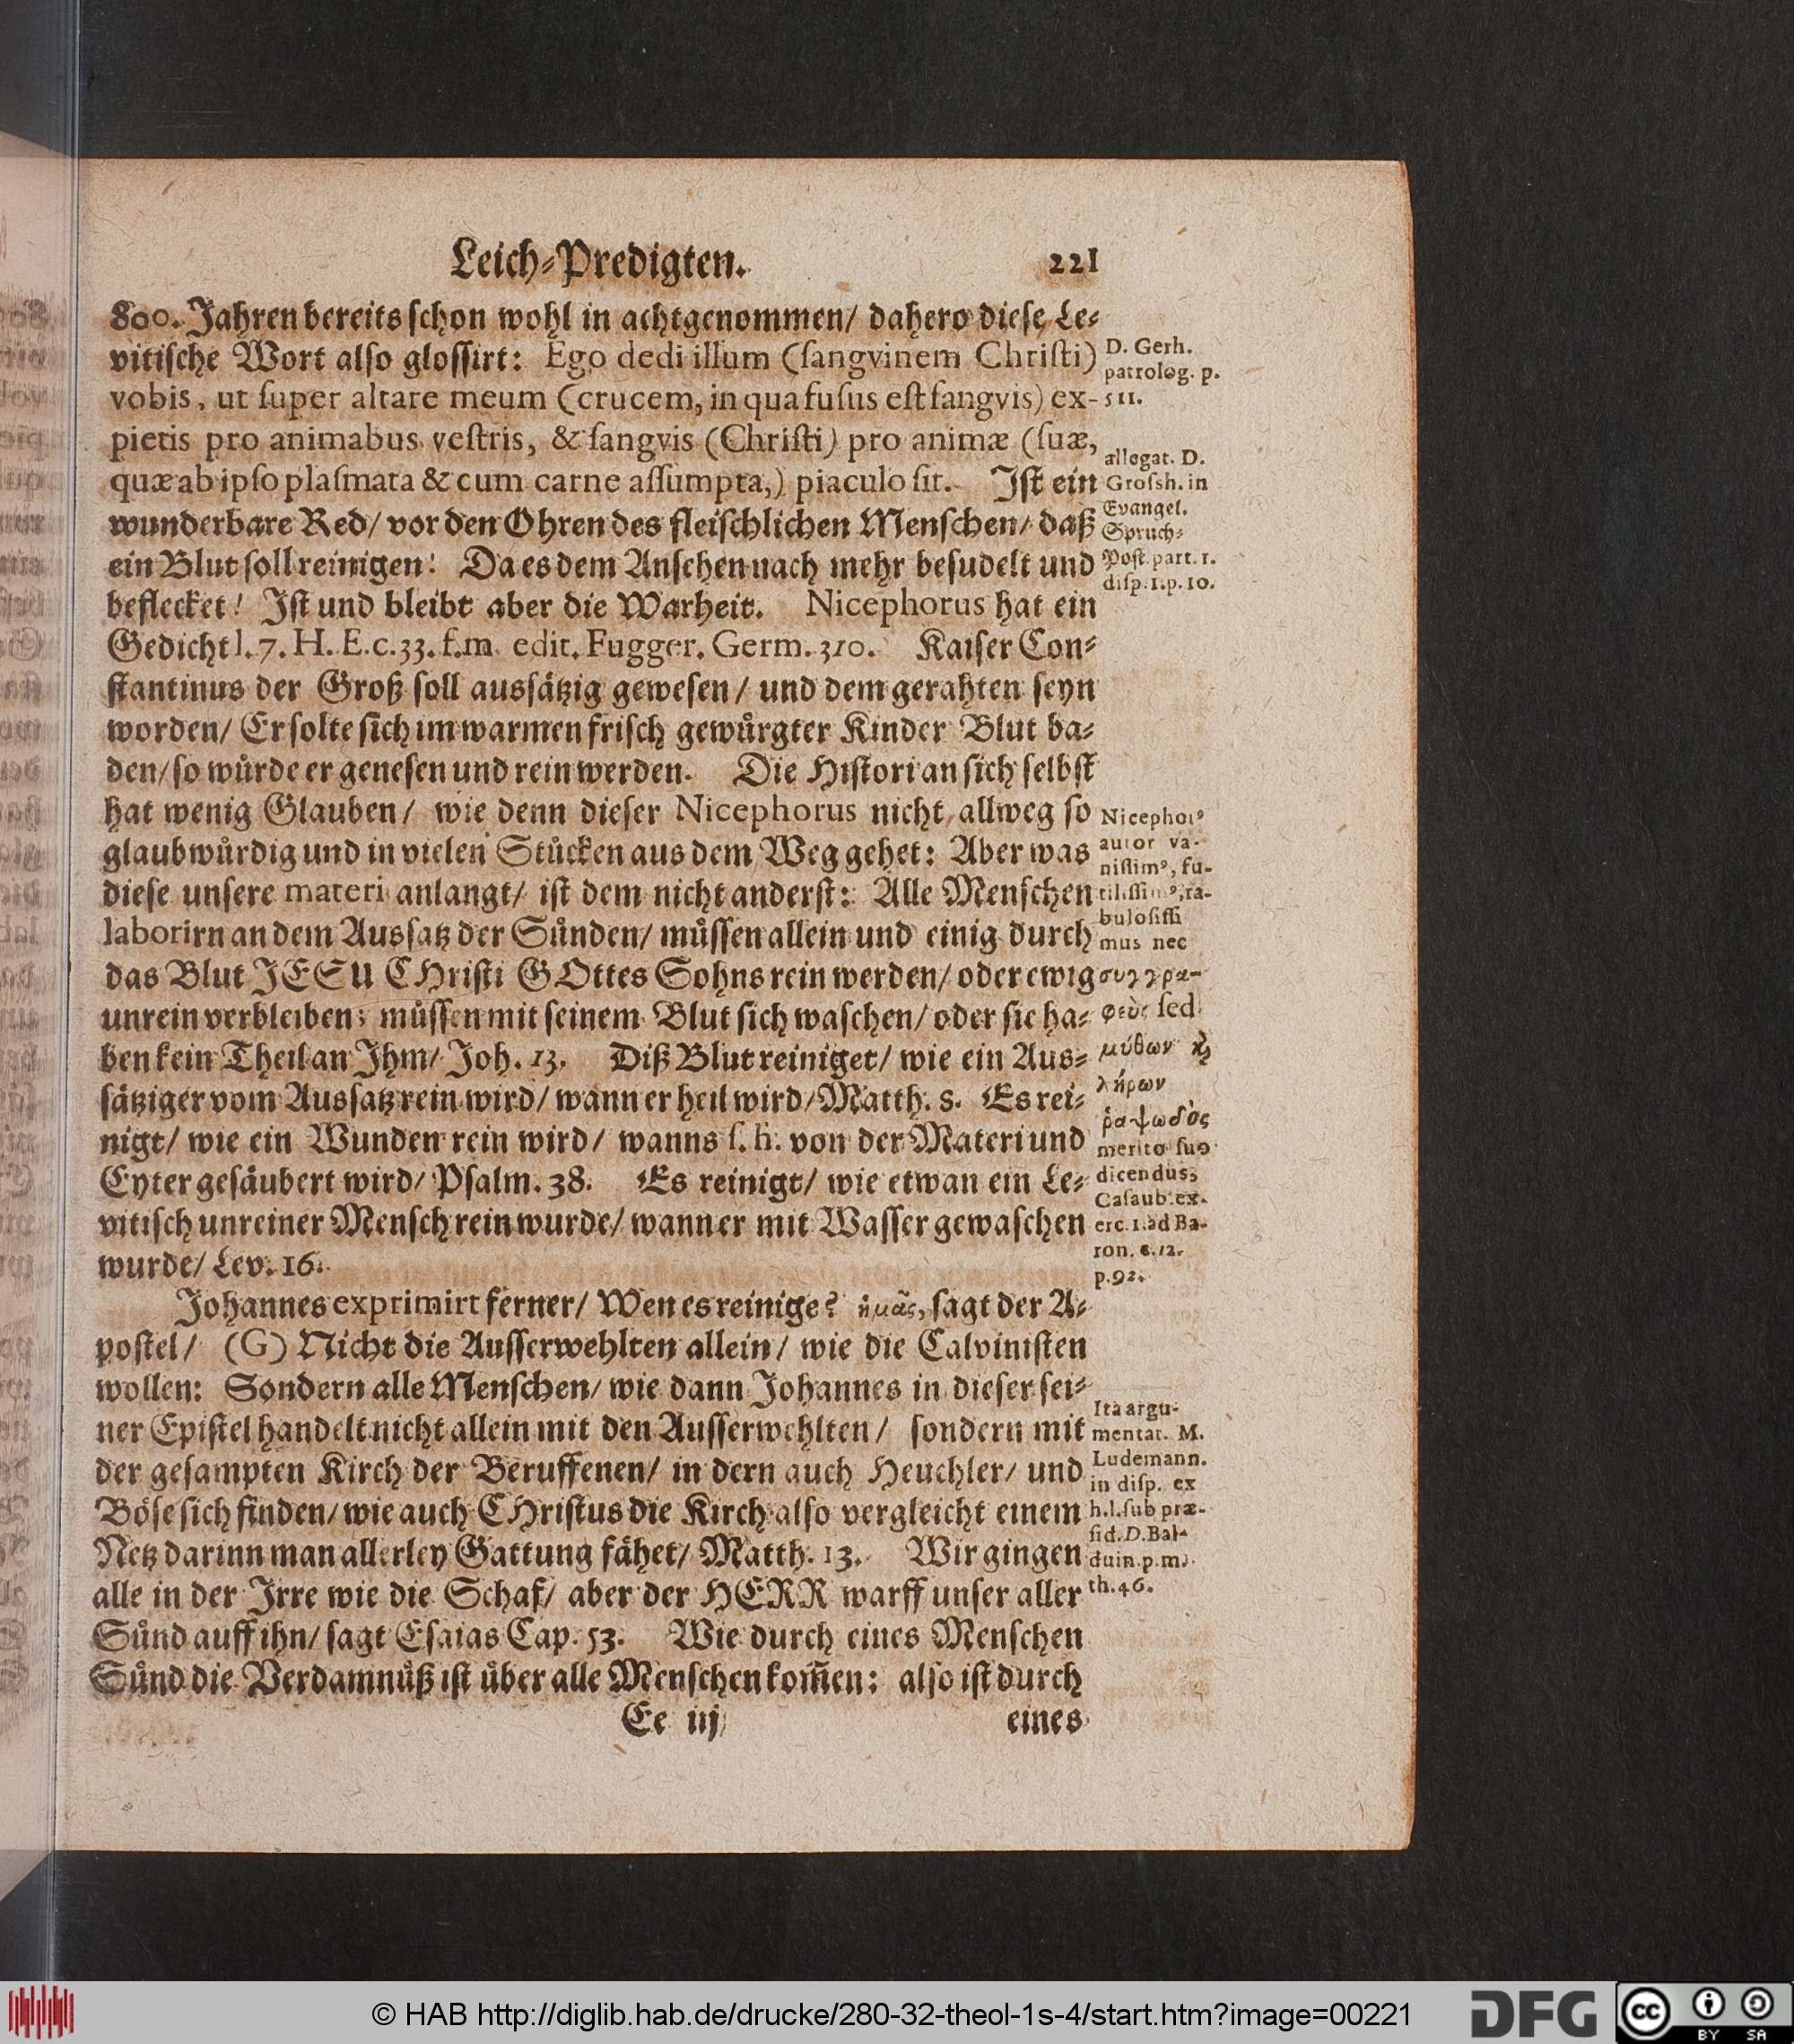 Leich-Predigten. 221
800. Jahren bereits schon wohl in achtgenommen/ dahero diese Le-
vitische Wort also glossirt: Ego dedi illum (sangvinem Christi)
vobis, ut super altare meum (crucem, in qua fusus est sangvis) ex-
pietis pro animabus vestris, & sangvis (Christi) pro animæ (suæ,
quæ ab ipso plasmata & cum carne assumpta,) piaculo sit. Ist ein
wunderbare Red/ vor den Ohren des fleischlichen Menschen/ daß
ein Blut soll reinigen! Da es dem Ansehen nach mehr besudelt und
beflecket! Ist und bleibt aber die Warheit. Nicephorus hat ein
Gedicht l. 7. H. E. c. 33. f.m. edit. Fugger. Germ. 310. Kaiser Con-
stantinus der Groß soll aussätzig gewesen/ und dem gerahten seyn
worden/ Er solte sich im warmen frisch gewürgter Kinder Blut ba-
den/ so würde er genesen und rein werden. Die Histori an sich selbst
hat wenig Glauben/ wie denn dieser Nicephorus nicht allweg so
glaubwürdig und in vielen Stücken aus dem Weg gehet: Aber was
diese unsere materi anlangt/ ist dem nicht anderst: Alle Menschen
laborirn an dem Aussatz der Sünden/ müssen allein und einig durch
das Blut JESU CHristi GOttes Sohns rein werden/ oder ewig
unrein verbleiben; müssen mit seinem Blut sich waschen/ oder sie ha-
ben kein Theil an Ihm/ Joh. 13. Diß Blut reiniget/ wie ein Aus-
sätziger vom Aussatz rein wird/ wann er heil wird/ Matth. 8. Es rei-
nigt/ wie ein Wunden rein wird/ wanns s. h. von der Materi und
Eyter gesäubert wird/ Psalm. 38. Es reinigt/ wie etwan ein Le-
vitisch unreiner Mensch rein wurde/ wann er mit Wasser gewaschen
wurde/ Lev. 16.
Johannes exprimirt ferner/ Wen es reinige? ἡμᾶς, sagt der A-
postel/ (G) Nicht die Ausserwehlten allein/ wie die Calvinisten
wollen: Sondern alle Menschen/ wie dann Johannes in dieser sei-
ner Epistel handelt nicht allein mit den Ausserwehlten/ sondern mit
der gesampten Kirch der Beruffenen/ in dern auch Heuchler/ und
Böse sich finden/ wie auch CHristus die Kirch also vergleicht einem
Netz darinn man allerley Gattung fähet/ Matth. 13. Wir gingen
alle in der Irre wie die Schaf/ aber der HERR warff unser aller
Sünd auff ihn/ sagt Esaias Cap. 53. Wie durch eines Menschen
Sünd die Verdamnüß ist über alle Menschen kom̃en: also ist durch
Ee iij eines
D. Gerh.
patrolog. p.
511.
allegat. D.
Grossh. in
Evangel.
Spruch-
Post. part. 1.
disp. 1. p. 10.
Nicephorꝰ
autor va-
nissimꝰ, fu-
tilissimꝰ, fa-
bulosissi
mus nec
συγγρα-
φεὺς sed
μύθων ϗ
λήρων
ῥαψωδὸς
merito suo
dicendus;
Casaub. ex-
erc. 1. ad Ba-
ron. c. 12.
p. 92.
Ita argu-
mentat. M.
Ludemann.
in disp. ex
h.l. sub præ-
sid. D. Bal-
duin. p. m.
th. 46.
© HAB http://diglib.hab.de/drucke/280-32-theol-1s-4/start.htm?image=00221
DFG
cc
BY SA